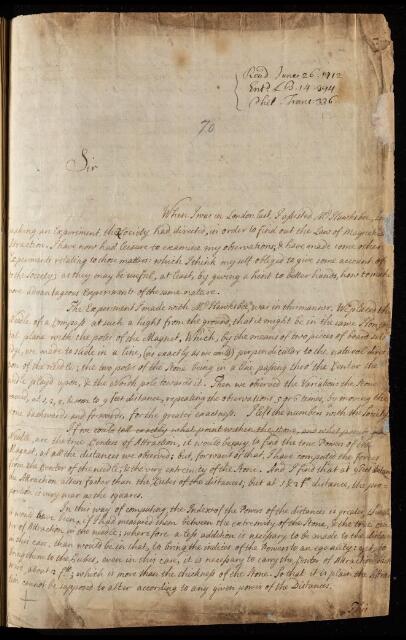 Read June 26. 1712
Ent.d L.B. 14. 344
Phil. Trans. 336
70
Sir
When I was in London last, I assisted Mr. Hawksbee, in
making an Experiment, the Society had directed, in order to find out the Law of Magnetical
attraction. I have now had leisure to examine my observations, & have made some other
Experiments relating to those matters: which I think my self obliged to give some account of
to the Society; as they may be useful, at least, by giving a hint to better hands, how to make
more advantageous Experiments of the same nature.
The Experiment I made with Mr. Hawksbee, was in this manner. We placed the
Needle of a Compass at such a hight from the ground, that it might be in the same Horizon-
tal plane with the poles of the Magnet, Which, by the means of two pieces of board set
, we made to slide in a line, (as exactly as we could) perpendicular to the natural direc-
tion of the needle; the two poles of the Stone being in a line passing thro the Center the
needle played upon, & the North pole towards it. Then we observed the Variations the Stone
caused, at 1, 2, &c. down to 9 foot distance, repeating the observations 5 or 6 times, by moving the
Stone backwards and forwards, for the greater exactness. I left the numbers with the Society.
If we could tell exactly what point within the Stone, and what point of the
Needle, are the true Centers of Attraction, it would be easy to find the true Powers of the
Magnet, at all the distances we observed; but, for want of that, I have computed the forces
from the Center of the needle, & the very extremity of the Stone. And I find that at 9 foot distance
the Attraction alters faster than the Cubes of the distances; but at 1 & 2 foot distance, the pro-
portion is very near as the squares.
In this way of computing, the Index of the Power of the distances is greater
it would have been, if I had measured them between the extremity of the Stone, & the true Cen-
ter of Attraction, in the needle; wherefore a less addition is necessary to be made to the distance
in this case, than would be in that, to bring the indices of the Powers to an equality: yet, to
bring them to the Cubes, even in this case, it is necessary to carry the Center of Attraction
, about foot; which is more than the thickness of the Stone. So that it is plain the Attrac-
tion cannot be supposed to alter according to any given power of the Distances.